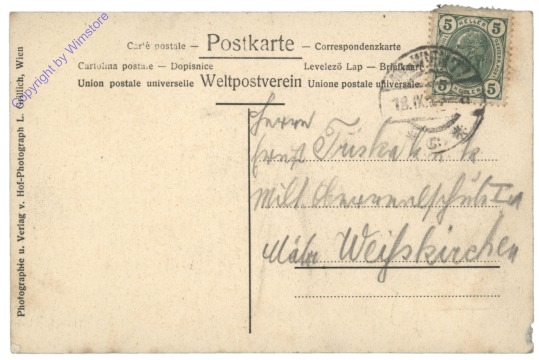 Carte postale — Postkarte — Correspondenzkarte
Cartolina postale — Dopisnice Levelező Lap — Briefkaart
Union postale universelle Weltpostverein Unione postale universale
5 HELLER 5
5 HELLER 5
18. IX.
Herrn
Ernst
Milt. Oberrealschule
Mähr Weißkirchen
Photographie u. Verlag v. Hof-Photograph L. Grillich, Wien
Copyright by Wimstore